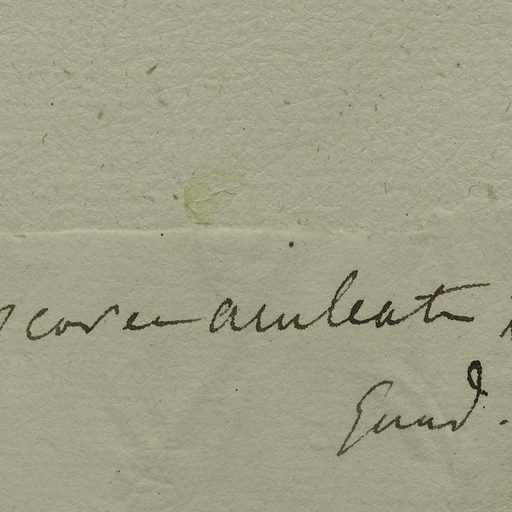 scorea aculeata
Guad.